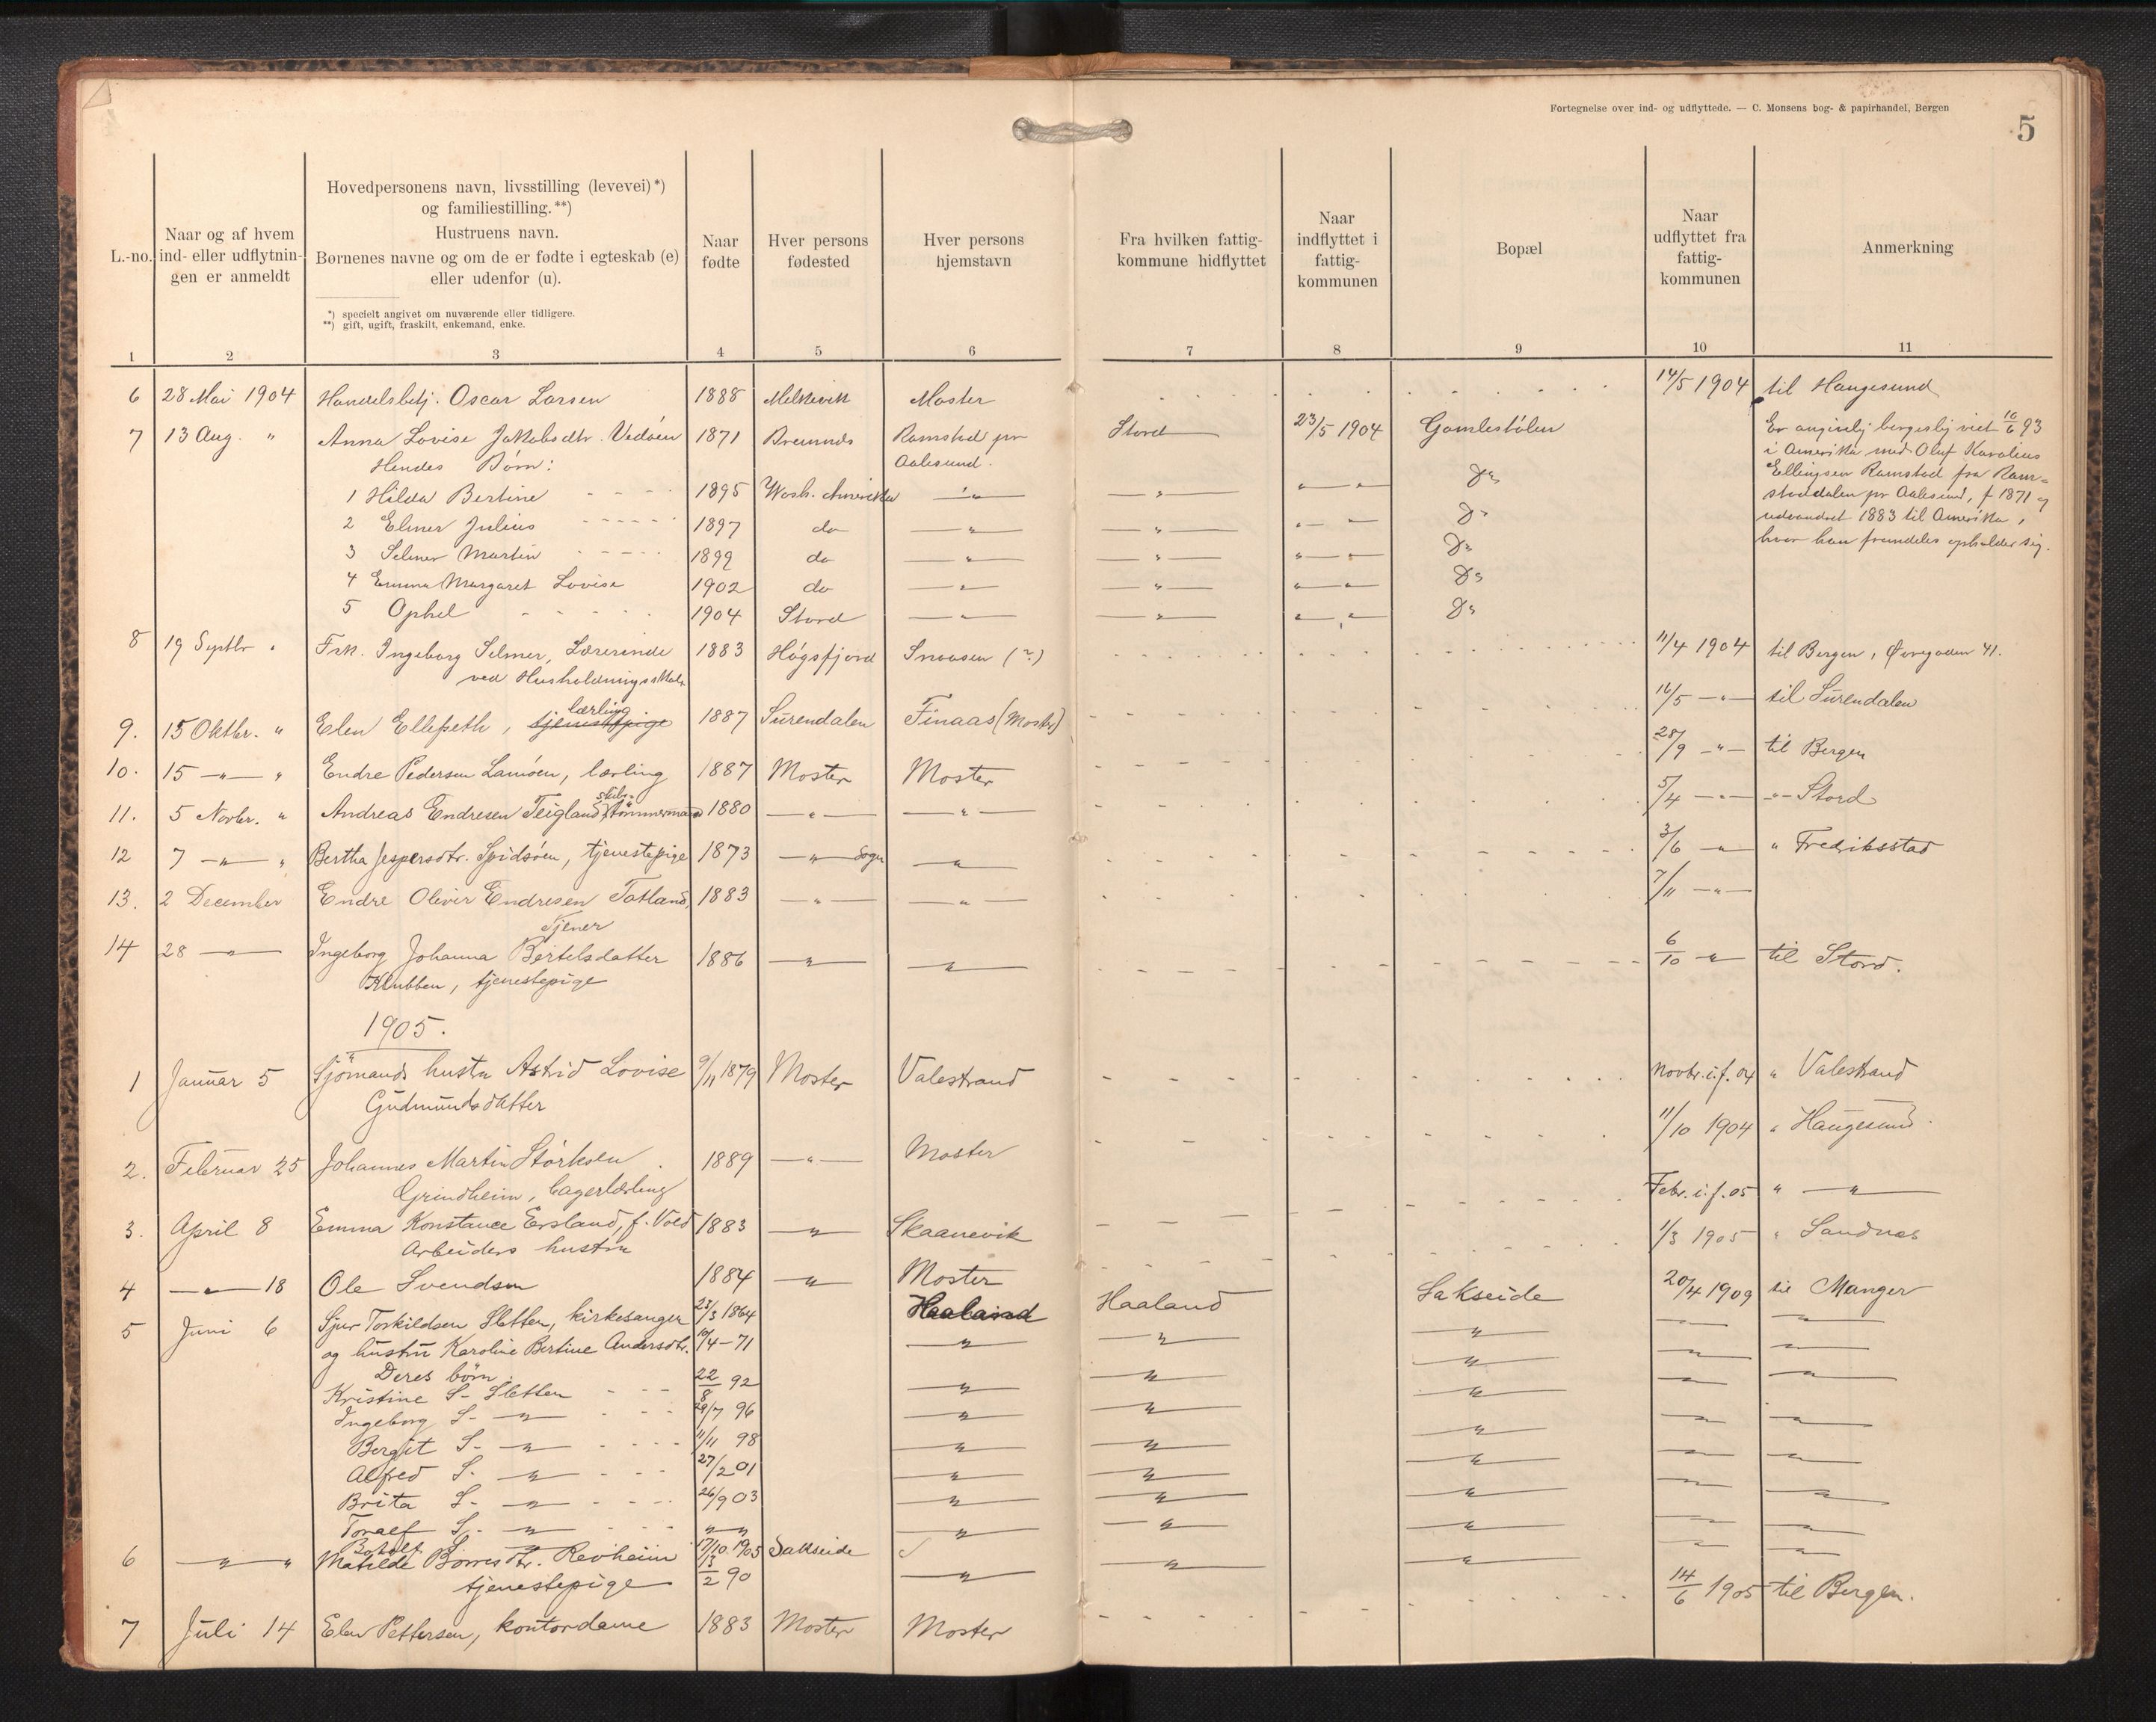 Fortegnelse over ind- og udflyttede. — C. Monsens bog- & papirhandel, Bergen
5
L.-no.
Naar og af hvem
ind- eller udflytnin-
gen er anmeldt
Hovedpersonens navn, livsstilling (levevei)*)
og familiestilling.**)
Hustruens navn.
Børnenes navne og om de er fødte i egteskab (e)
eller udenfor (u).
*) specielt angivet om nuværende eller tidligere.
**) gift, ugift, fraskilt, enkemand, enke.
Naar
fødte
Hver persons
fødested
Hver persons
hjemstavn
Fra hvilken fattig-
kommune hidflyttet
Naar
indflyttet i
fattig-
kommunen
Bopæl
Naar
udflyttet fra
fattig-
kommunen
Anmerkning
1 2 3 4 5 6 7 8 9 10 11
6 28 Mai 1904 Handelsbetj. Oscar Larsen 1888 Melkevik Moster 14/5 1904 til Haugesund
7 13 Aug. " Anna Lovise Jakobsdtr. Vedøen 1871 Bremnes Ramstad pr Aalesund. Stord 23/5 1904 Gamlestølen
Er angivelig borgerlig viet 16/6 93
i Amerika med Oluf Karolius
Ellingsen Ramstad fra Ram=
staddalen pr Aalesund, f 1871 og
udvandret 1883 til Amerika,
hvor han fremdeles opholder sig.
Hendes Børn:
1 Hilda Bertine - - - 1895 Wash. Amerika — " — — " — " — " Do
2 Elmer Julius - - - 1897 do — " — — " — " — " Do
3 Selmer Martin - - - 1899 do — " — — " — " — " Do
4 Emma Margaret Lovise 1902 do — " — — " — " — " Do
5 Ophel - - - 1904 Stord — " — — " — " — " Do
8 19 Septbr " Frk. Ingeborg Selmer, Lærerinde 1883 Høgsfjord Snaasen (?) 11/4 1904 til Bergen, Øvregaden 41.
ved Husholdningsskole
9. 15 Oktbr. " Elen Ellepeth, tjenestepige lærling 1887 Surendalen Finaas (Moster) 16/5 — " — til Surendalen
10. 15 — " — " Endre Pedersen Lamøen, lærling 1887 Moster Moster 28/9 — " — til Bergen
11. 5 Novbr. " Andreas Endresen Teigland, skibs-tømmermand 1880 — " — — " — 5/4 — " — " — Stord
12 7 — " — " Bertha Jespersdtr. Spidsøen, tjenestepige 1873 — " — Sogn — " — 3/6 — " — " Fredriksstad
13. 2 December Endre Oliver Endresen Totland, 1883 — " — — " — 7/11 — " —
Tjener
14 28 — " — Ingeborg Johanna Bertelsdatter 1886 — " — — " — 6/10 — " — til Stord.
Klubben, tjenestepige
1905.
1 Januar 5 Sjömands hustru Astrid Lovise 9/11 1879 Moster Valestrand Novbr. i. f. 04 " Valestrand
Gudmundsdatter
2. Februar 25 Johannes Martin Störksen 1889 — " — Moster 11/10 1904 " Haugesund.
Grindheim, bagerlærling
3. April 8 Emma Konstance Ersland, f. Vold 1883 — " — Skaanevik Febr. i. f. 05 " — " —
Arbeiders hustru
4 — " — 18 Ole Svendsen 1884 — " — Moster 1/3 1905 " Sandnæs
5 Juni 6 Sjur Torkildsen Sletten, kirkesanger 23/3 1864 Haaland Haaland Sakseide 20/4 1909 til Manger
og hustru Karoline Bertine Andersdtr. 10/4 - 71 — " — — " — — " — — " — — " —
Deres börn
Kristine S- Sletten - - - 22/8 92 — " — — " — — " — — " — — " —
Ingeborg S- — " — - - - 29/7 96 — " — — " — — " — — " — — " —
Bergit S- — " — - - - 11/11 98 — " — — " — — " — — " — — " —
Alfred S. — " — - - - 27/2 01 — " — — " — — " — — " — — " —
Brita S- — " — - - - 26/9 03 — " — — " — — " — — " — — " —
Toralf S. — " — - - - " " — " — — " — — " — — " — — " —
S. — " — 17/10 1905 Sakseide
6 — " — " Matilde Börresdtr. Revheim 13/2 90 — " — — " — — " — — " — — " —
tjenestepige
7 Juli 14 Elen Pettersen, kontordame 1883 Moster Moster 14/6 1905 til Bergen.